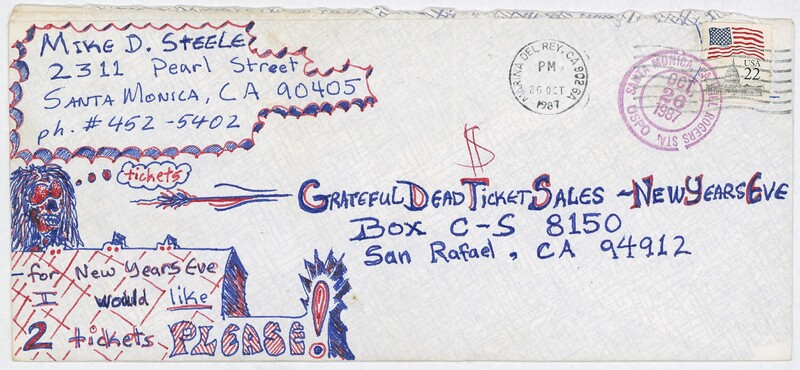 MIKE D. STEELE
2311 Pearl Street
SANTA MONICA, CA 90405
ph. #452-5402
tickets
MARINA DEL REY, CA 902 6A
PM
26 OCT
1987
SANTA MONICA, CA
ROGERS STA.
OCT
26
1987
USA
22
$
GRATEFUL DEAD TICKET SALES ~ NEW YEARS EVE
BOX C-S 8150
San Rafael, CA 94912
-for New Years Eve
I would like
2 tickets PLEASE!